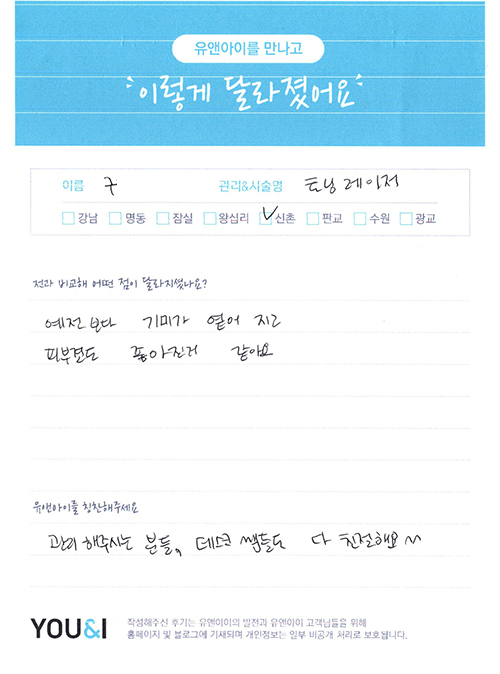 유앤아이를 만나고
이렇게 달라졌어요
이름 구 관리&시술명 토닝레이저
강남 명동 잠실 왕십리 신촌 판교 수원 광교
전과 비교해 어떤 점이 달라지셨나요?
예전보다 기미가 옅어 지고
피부결도 좋아진거 같아요
유앤아이를 칭찬해주세요
관리해주시는 분들, 데스크 쌤들도 다 친절해요~
YOU&I
작성해주신 후기는 유앤아이의 발전과 유앤아이 고객님들을 위해
홈페이지 및 블로그에 기재되며 개인정보는 일부 비공개 처리로 보호됩니다.